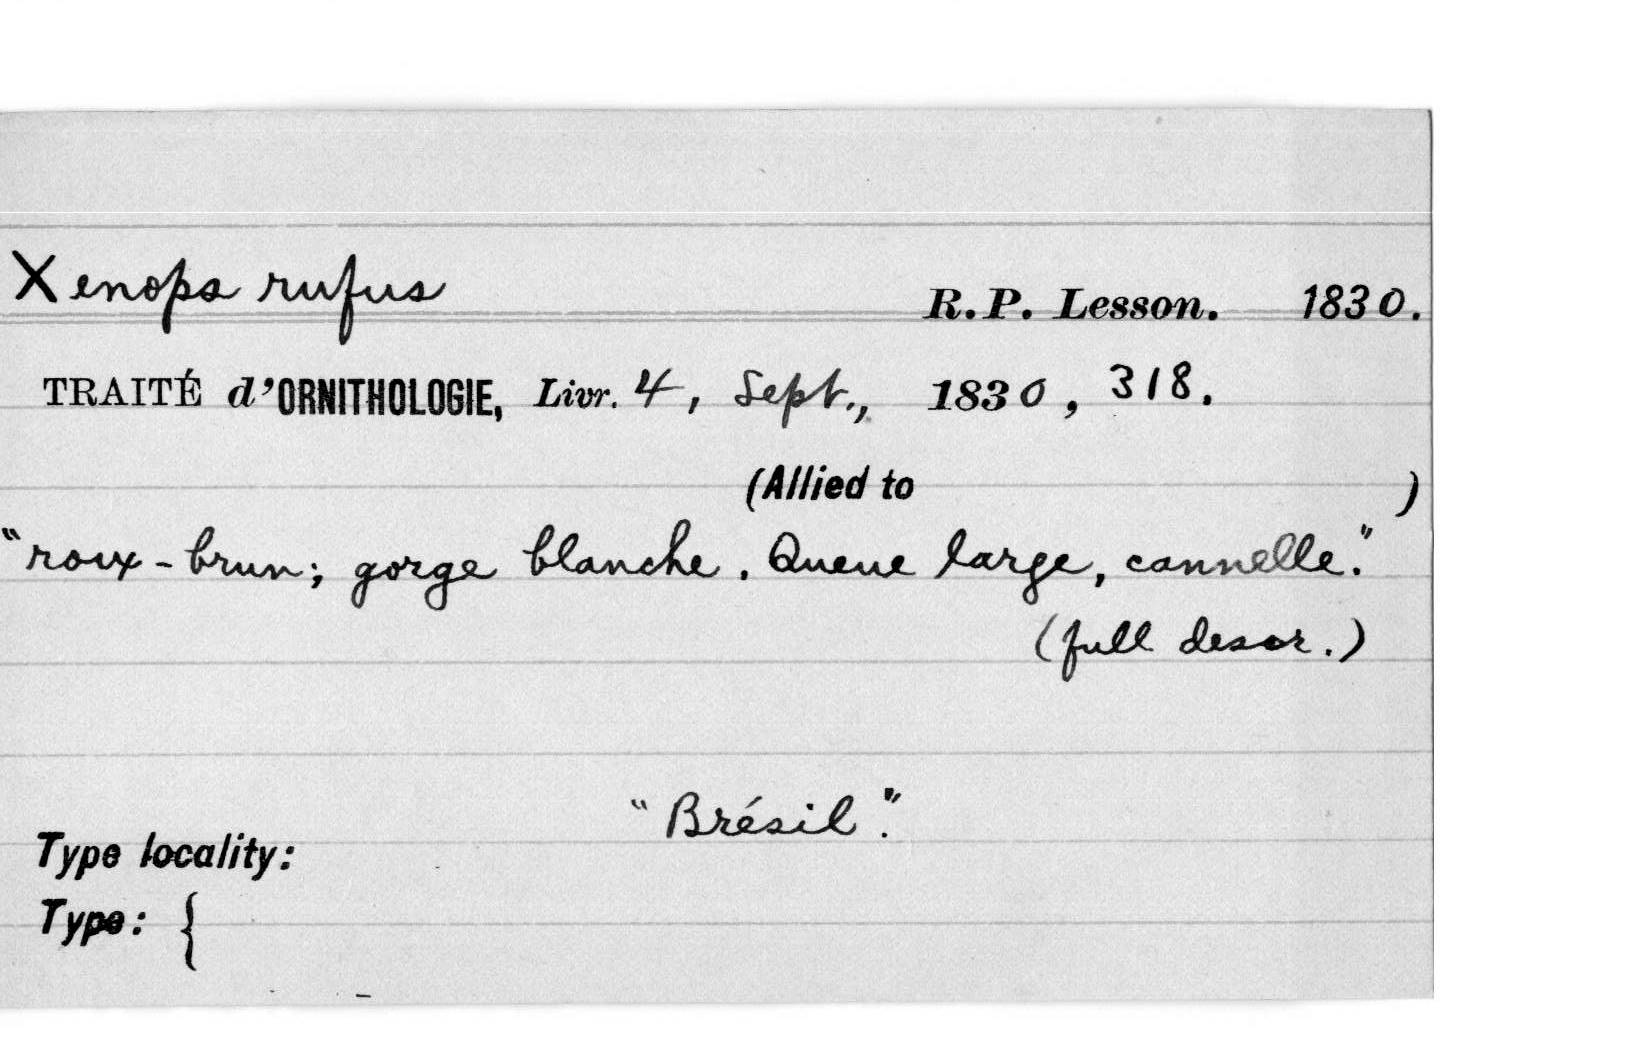 Xenops rufus R.P. Lesson. 1830.
TRAITÉ d'ORNITHOLOGIE, Livr. 4, Sept., 1830, 318.
(Allied to )
"roux-brun; gorge blanche. Queue large, cannelle."
(full descr.)
"Brésil".
Type locality:
Type: {